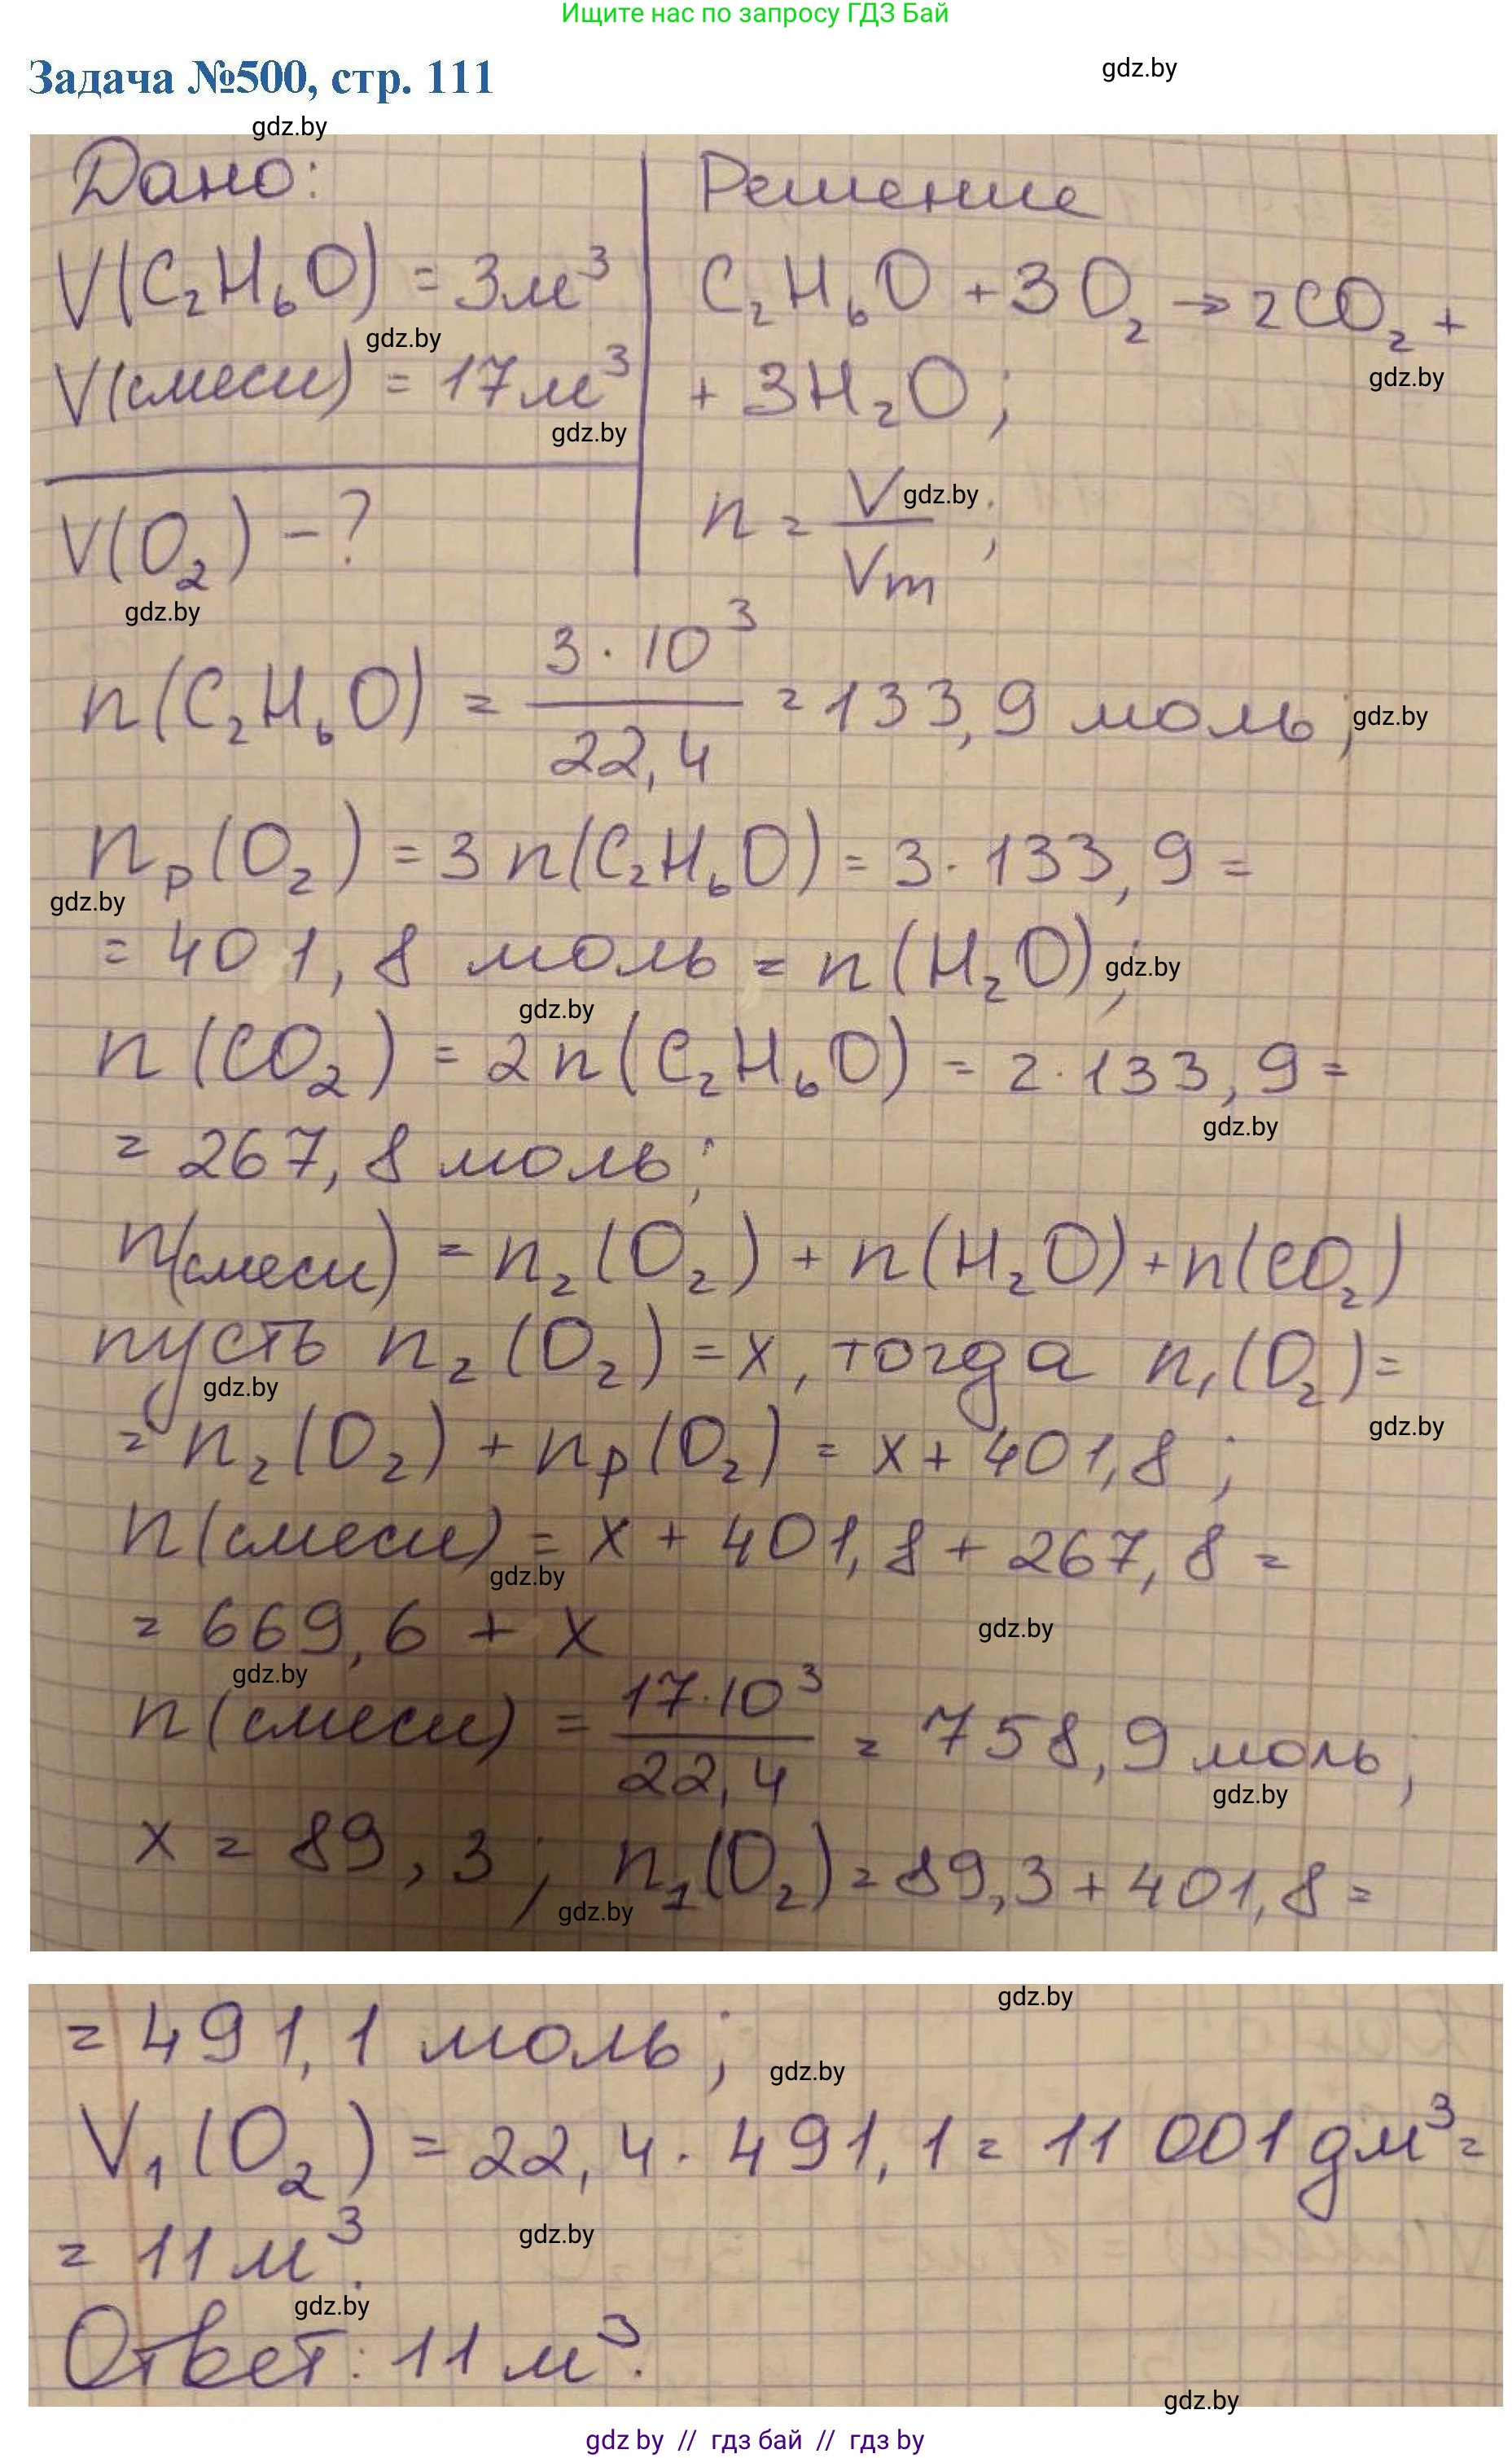 Ищите нас по запросу ГДЗ Бай
Задача №500, стр. 111
gdz.by
gdz.by
Дано:
V(C₂H₆O) = 3м³
gdz.by
V(смеси) = 17м³
gdz.by
V(O₂) - ?
gdz.by
Решение
C₂H₆O + 3O₂ → 2CO₂ +
gdz.by
+ 3H₂O;
n = V/Vm;
gdz.by
n(C₂H₆O) = 3·10³/22,4 = 133,9 моль;
gdz.by
nр(O₂) = 3n(C₂H₆O) = 3·133,9 =
gdz.by
= 401,8 моль = n(H₂O);
gdz.by
gdz.by
n(CO₂) = 2n(C₂H₆O) = 2·133,9 =
gdz.by
= 267,8 моль;
n(смеси) = n₂(O₂) + n(H₂O) + n(CO₂)
пусть n₂(O₂) = x, тогда n₁(O₂) =
gdz.by
= n₂(O₂) + nр(O₂) = x + 401,8;
gdz.by
n(смеси) = x + 401,8 + 267,8 =
gdz.by
= 669,6 + x
gdz.by
gdz.by
n(смеси) = 17·10³/22,4 = 758,9 моль;
gdz.by
x = 89,3; n₁(O₂) = 89,3 + 401,8 =
gdz.by
= 491,1 моль;
gdz.by
gdz.by
V₁(O₂) = 22,4·491,1 = 11 001 дм³ =
= 11 м³.
gdz.by
gdz.by
Ответ: 11 м³.
gdz.by
gdz by // гдз бай // гдз by